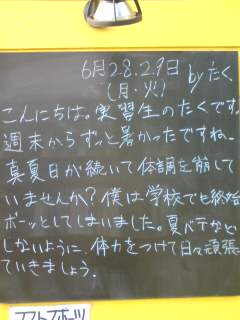 6月28.29日
(月・火)
byたく.
こんにちは。実習生のたくです。
週末からずっと暑かったですねー
真夏日が続いて体調を崩して
いませんか?僕は学校でも終始
ボーッとしてしまいました。夏バテなど
しないように、体力をつけて日々頑張っ
ていきましょう。